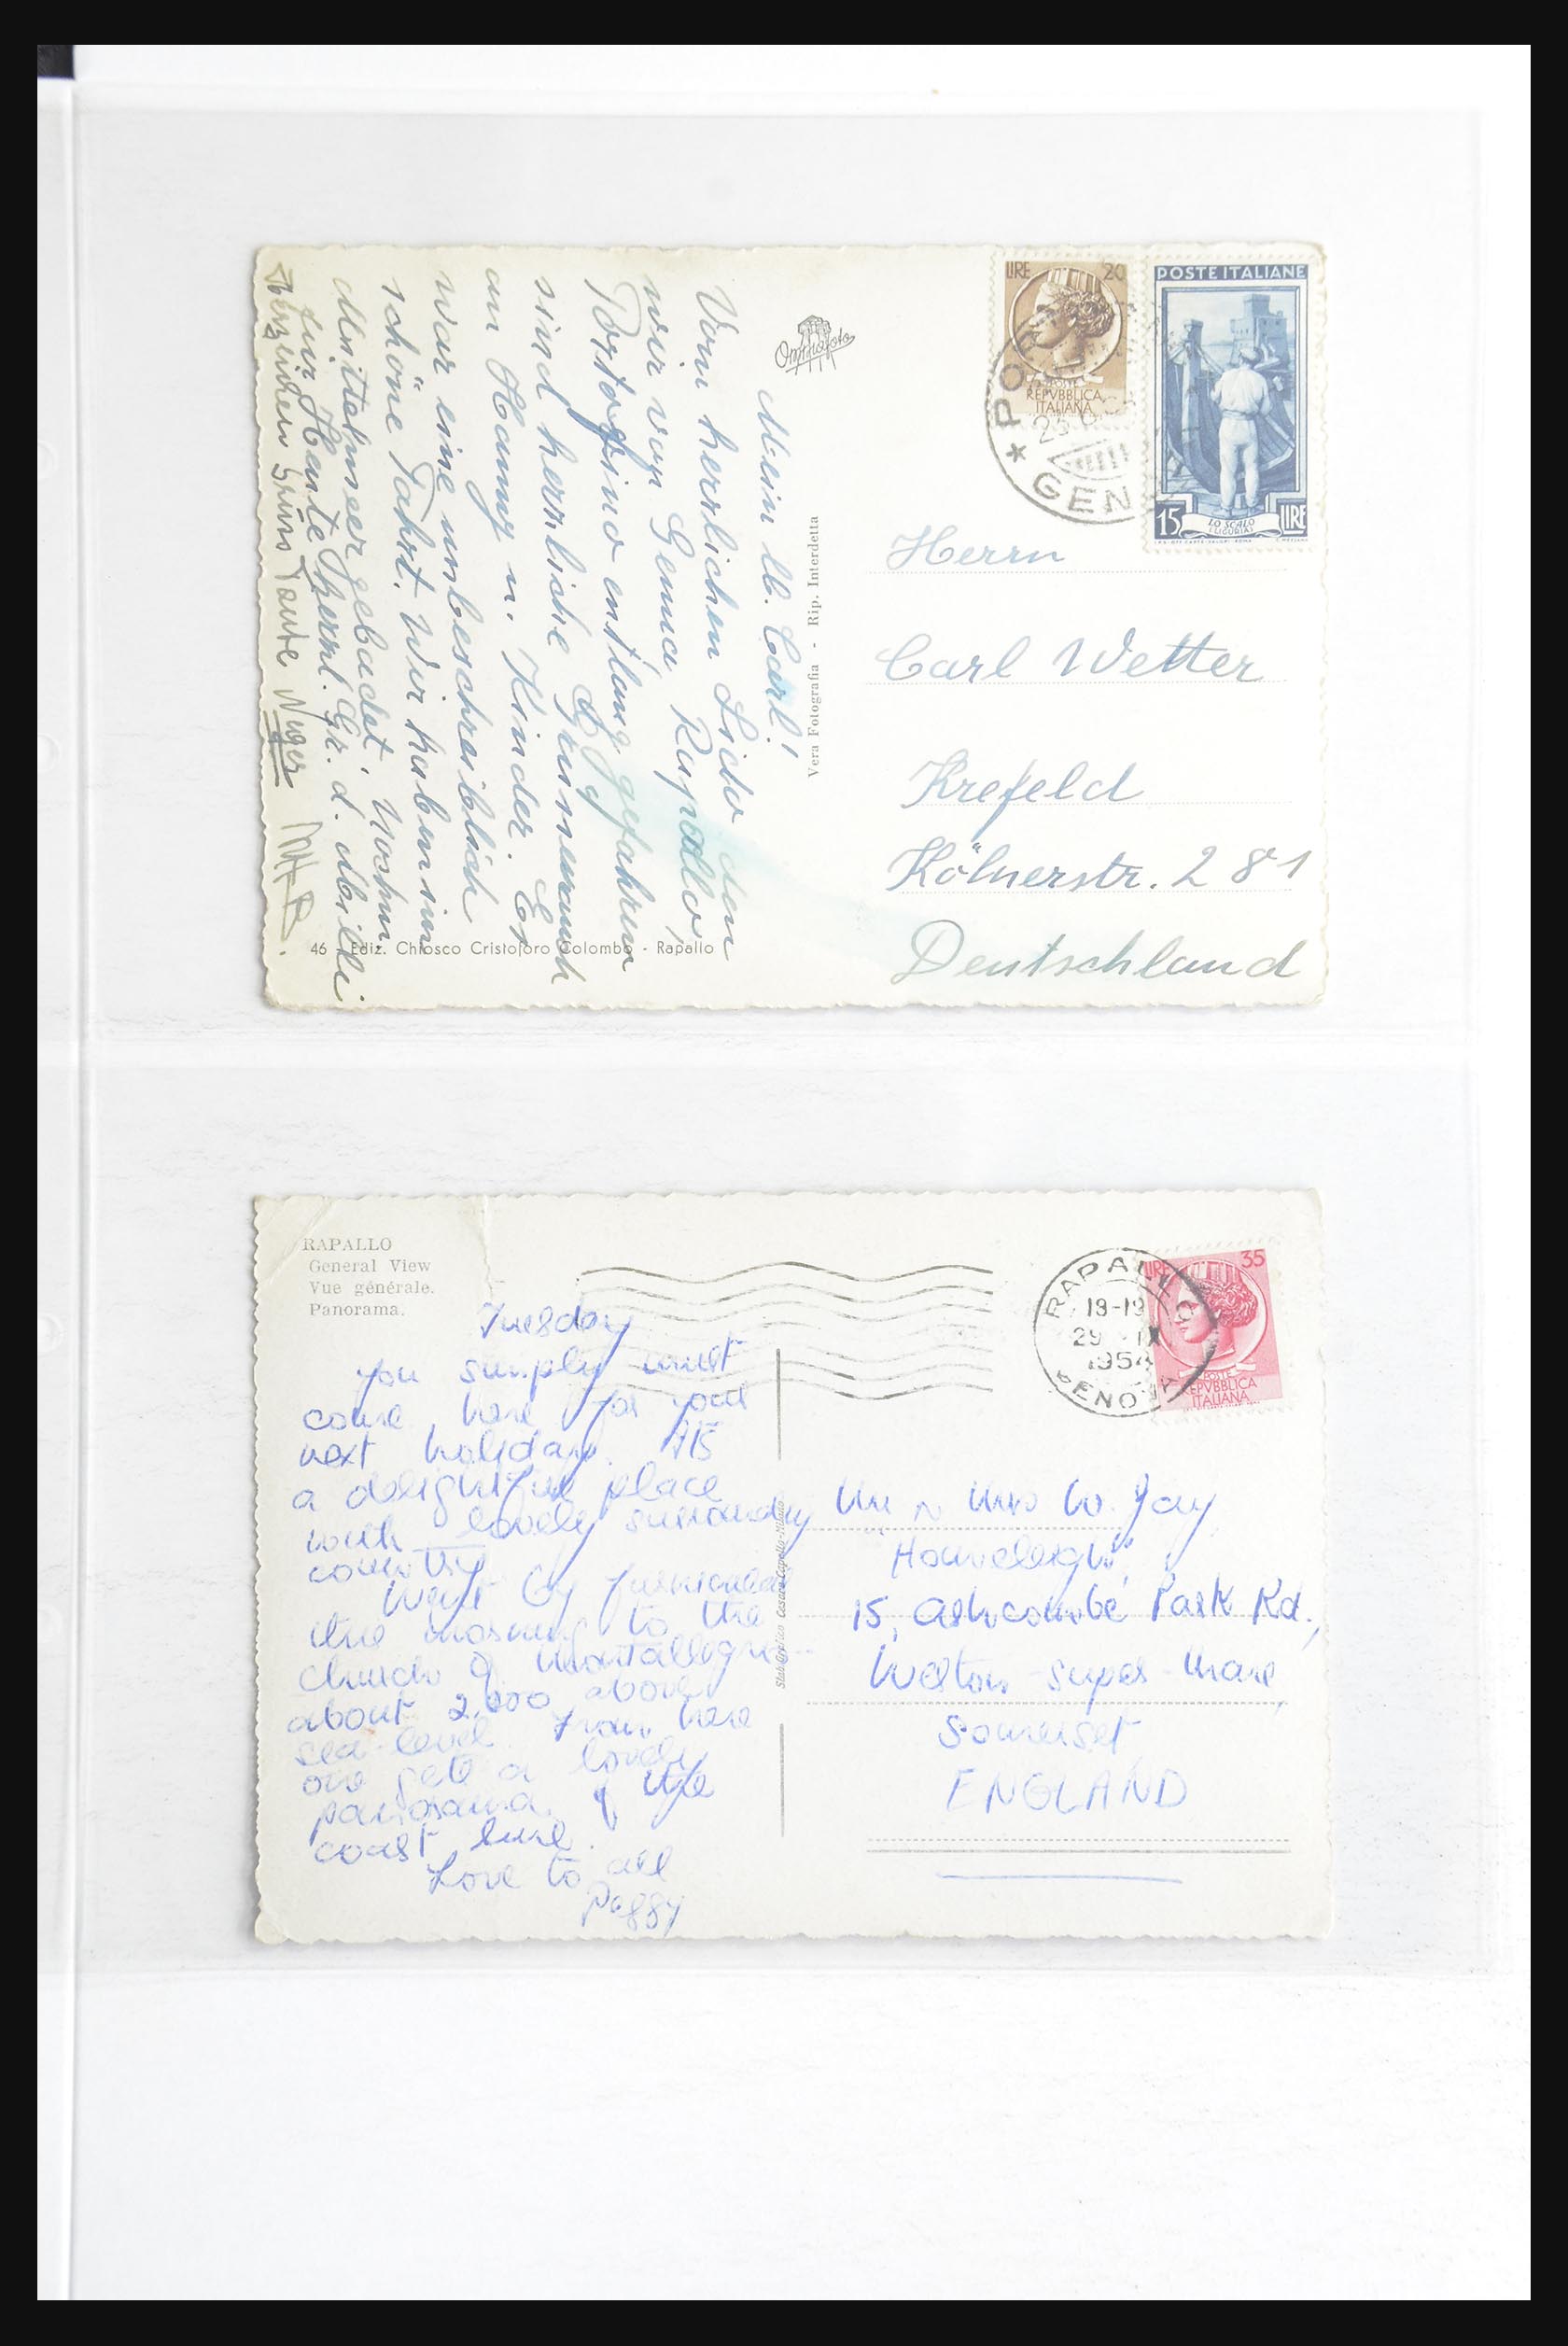 Mein lb. Carl!
Vom herrlichen Lido den
wir von Genua, Rapallo,
Portofino entlang gefahren
sind herrliche
an Hanny u. Kinder. Es
war eine unbeschreiblich
schöne Fahrt. Wir haben im
Mittelmeer gebadet. Nochm.
für Heute herzl. Gr. d.
Herzlichen Gruss Tante
46 - Ediz. Chiosco Cristoforo Colombo - Rapallo
Omniafoto
Vera Fotografia - Rip. Interdetta
LIRE 20
POSTE
REPVBBLICA
ITALIANA
POSTE ITALIANE
15 LO SCALO LIRE
(LIGURIA)
GEN
Herrn
Carl Wetter
Krefeld
Kölnerstr. 281
Deutschland
RAPALLO
General View
Vue générale.
Panorama.
Tuesday
You simply must
come here for your
next holiday. Its
a delightful place
with lovely surrounding
country.
Went by funicular
this morning to the
church of Montallegro
about 2,000 above
sea-level. From here
one gets a lovely
panorama of the
coast line.
Love to all
Peggy
Stab. Grafico Cesare Capello - Milano
RAPALLO
19-19
29 IX
1954
GENOVA
LIRE 35
POSTE
REPVBBLICA
ITALIANA
Mr & Mrs W. Jay
"Homeleigh",
15, Ashcombe Park Rd.,
Weston-super-Mare,
Somerset
ENGLAND